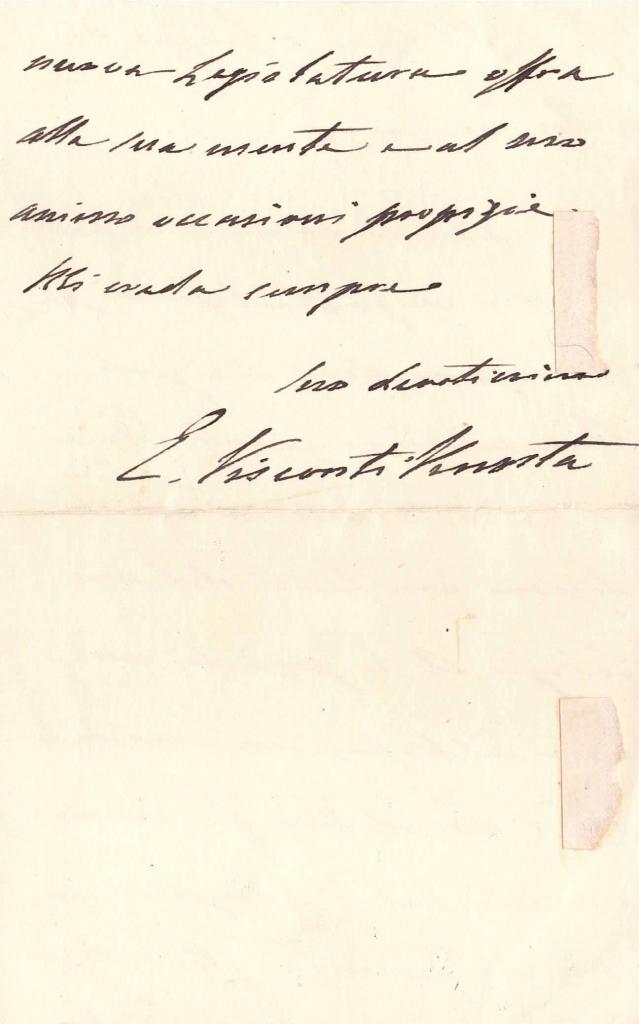 nuova Legislatura offra
alla sua mente e al suo
animo occasioni propizie.
Mi creda sempre
suo devotissimo
E. Visconti Venosta